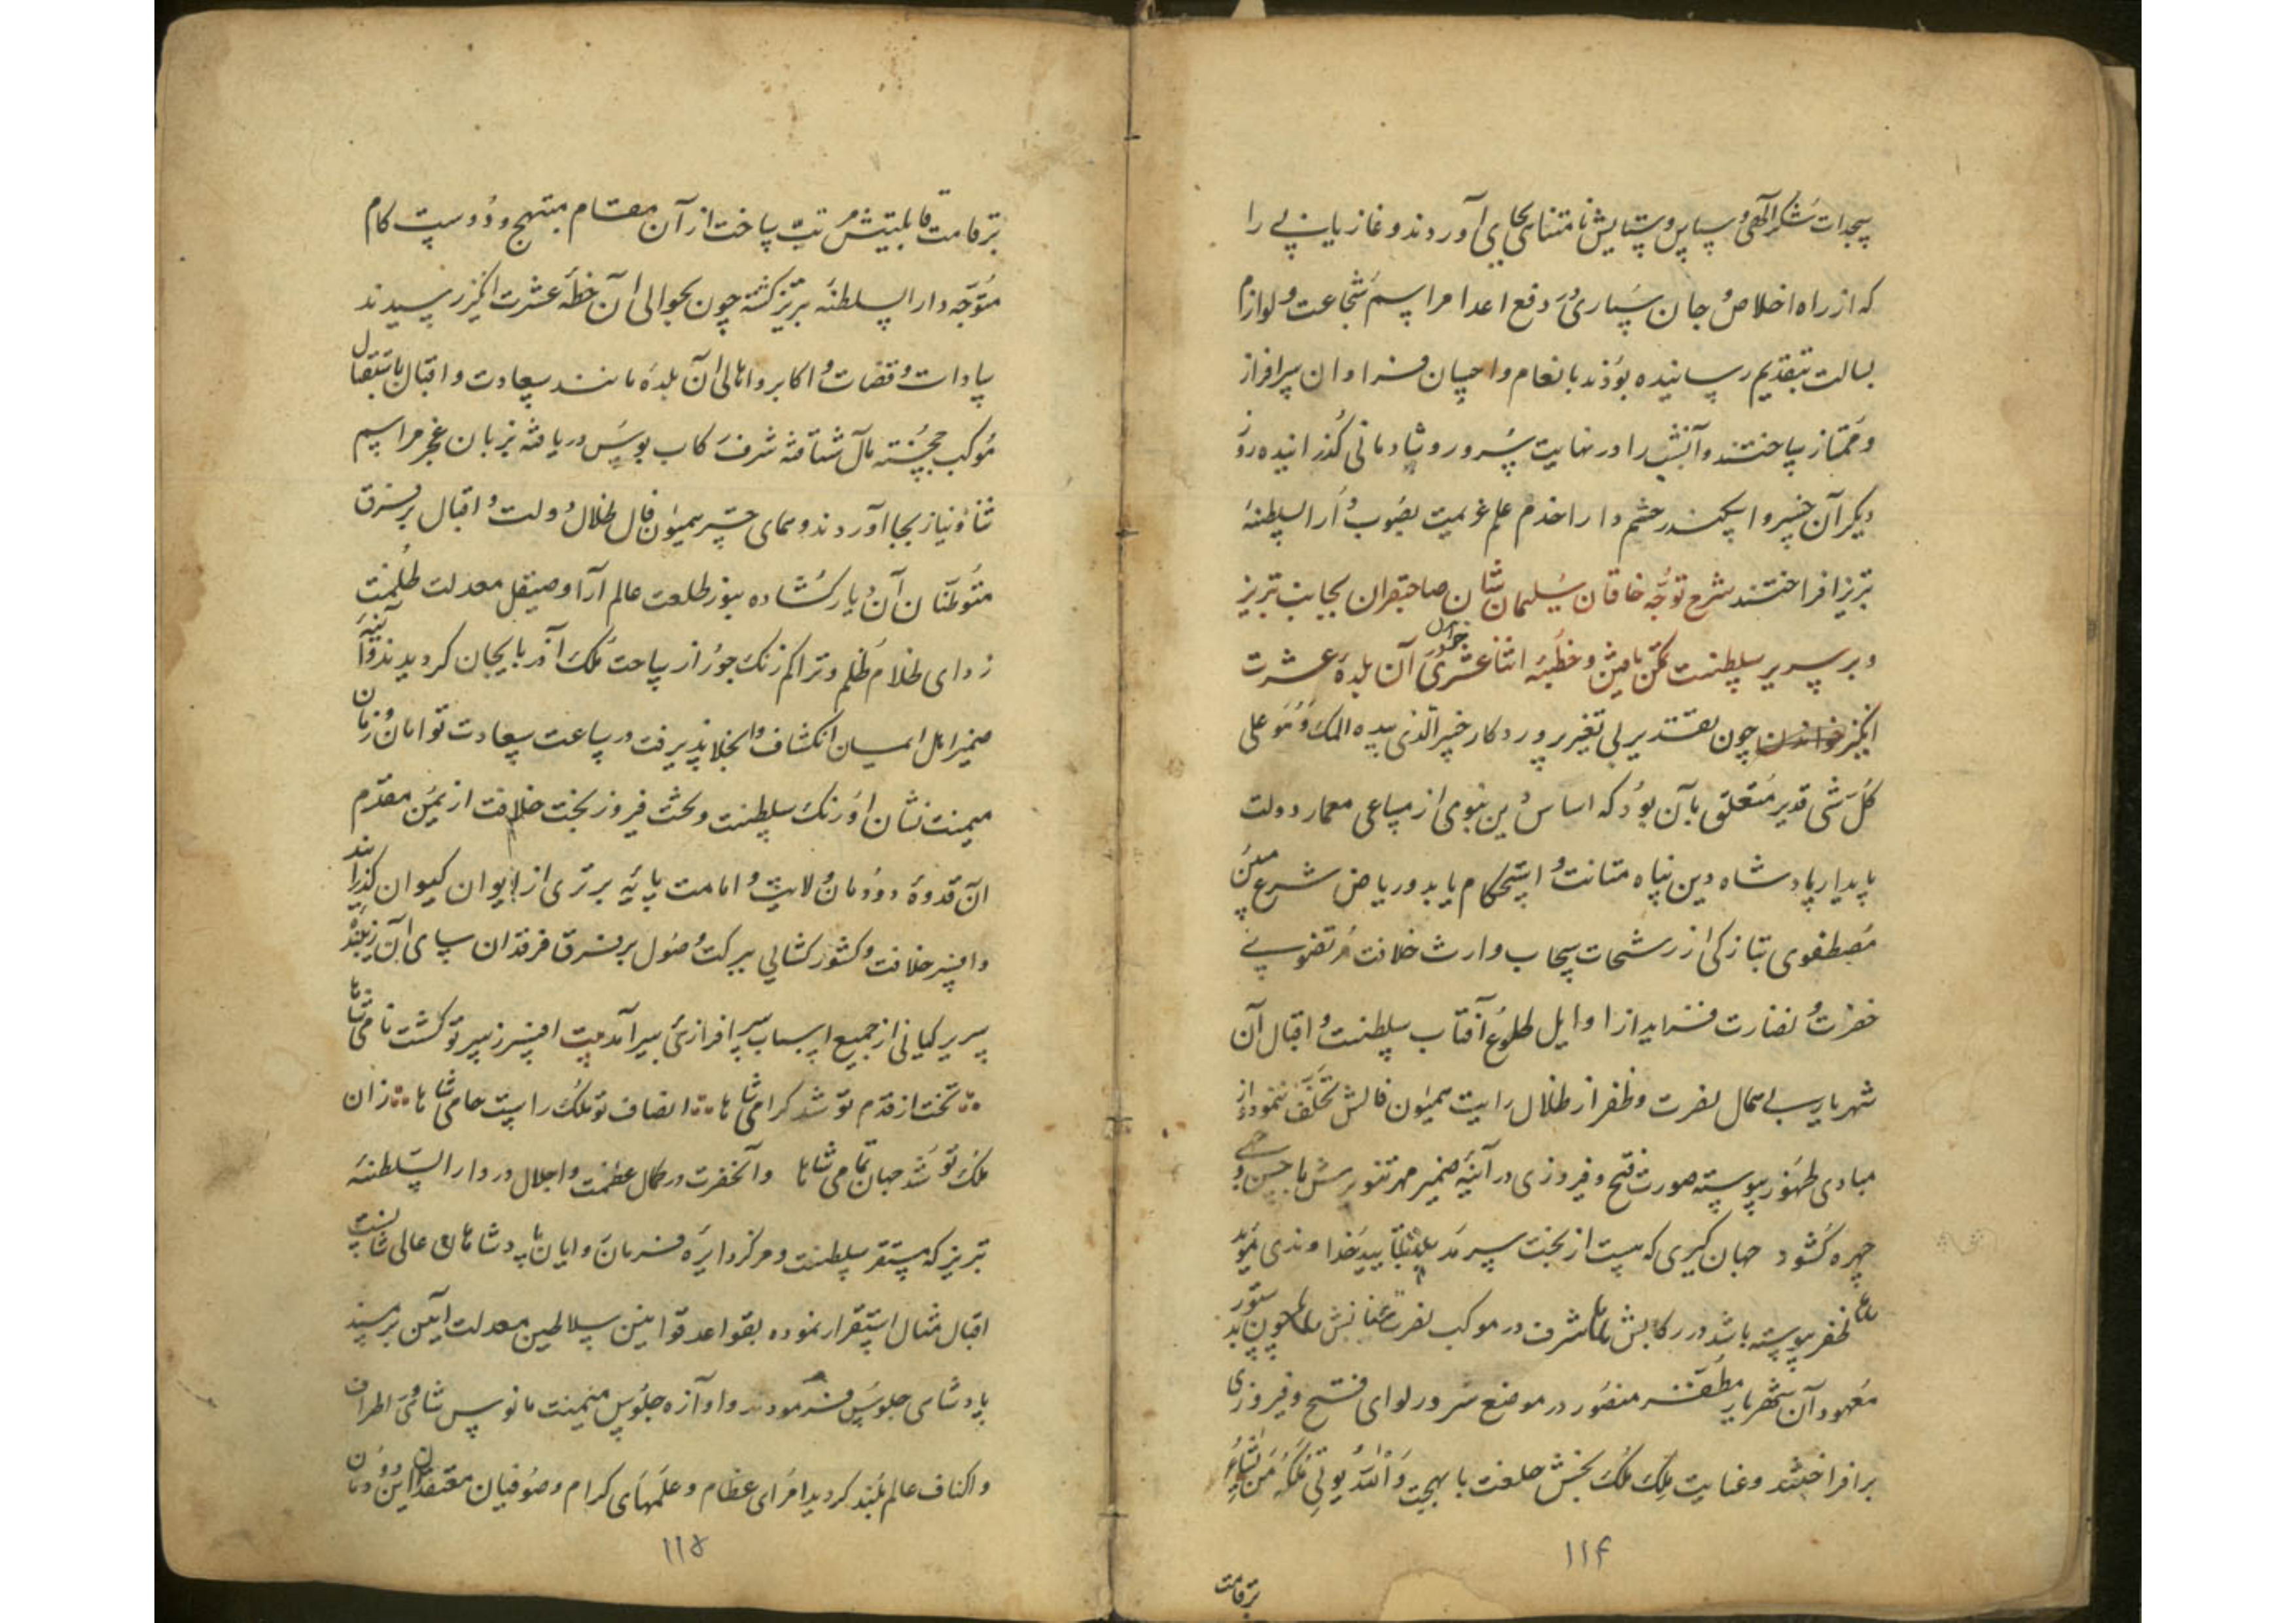 سجدات شکر الهی و سپاس و ستایش نامتناهی بجای آوردند و غازیانی را
که از راه اخلاص و جان سپاری در دفع اعدا مراسم شجاعت و لوازم
بسالت بتقدیم رسانیده بودند بانعام و احسان فراوان سرافراز
و ممتاز ساختند و آنشب را در نهایت سرور و شادمانی گذرانیده روز
دیگر آن خسرو اسکندر حشم دارا خدم علم عزیمت بصوب دار السلطنه
تبریز افراختند شرح توجه خاقان سلیمان شان صاحبقران بجانب تبریز
و بر سریر سلطنت تمکن یافتن و خطبه اثنا عشری در آن بلده عشرت
انگیز خواندن چون تقدیر بی تغییر پروردکار خبیر الذی بیده الملک و هو علی
کل شی قدیر متعلق بآن بود که اساس دین نبوی از مساعی معمار دولت
پایدار پادشاه دین پناه متانت و استحکام یابد و ریاض شرع مبین
مصطفوی بتازکی از رشحات سحاب وارث خلافت مرتضوی
خضرت و نضارت فزاید از اوایل طلوع آفتاب سلطنت و اقبال آن
شهریار بی همال نصرت و ظفر از ظلال رایت همیون فالش تخلف ننموده و از
مبادی ظهور پیوسته صورت فتح و فیروزی در آینه ضمیر مهر تنویرش با حسن وجهی
چهره کشود جهان کیری که هست از بخت سرمد بتایید خداوندی موید
ظفر پیوسته باشد در رکابش شرف در موکب نصرت عنانش چون بدستور
معهود آن شهریار مظفر منصور در موضع سرور لوای فتح و فیروزی
برافراختند و عنایت ملک ملک بخش خلعت با بهجت والله یوتی ملکه من یشاء
۱۱۴
بر قامت
بر قامت قابلیتش مرتب ساخت از آن مقام مبتهج و دوست کام
متوجه دار السلطنه تبریز کشته چون بحوالی آن خطه عشرت انگیز رسیدند
سادات و قضات و اکابر و اهالی آن بلده مانند سعادت و اقبال باستقبال
موکب خجسته مآل شتافته شرف رکاب بوس دریافته بزبان عجز مراسم
ثنا و نیاز بجا آوردند و همای چتر همیون فال ظلال دولت و اقبال بر فرق
متوطنان آن دیار کشاده بنور طلعت عالم آرا و صیقل معدلت ظلمت
زدای ظلام ظلم و تراکم زنک جور از ساحت ملک آذربایجان کردیدند و آینه
ضمیر اهل ایمان انکشاف و انجلا پذیرفت در ساعت سعادت توامان و زمان
میمنت نشان اورنک سلطنت و تخت فیروز بخت خلافت از یمن مقدم
آن قدوه دودمان ولایت و امامت پایه برتری از ایوان کیوان گذرانید
و افسر خلافت و کشورکشایی ببرکت وصول بر فرق فرقدان سای آن زیبنده
سریر کیانی از جمیع اسباب سرافرازی بسر آمد بیت افسر ز سر تو کشت نامی شاها
تخت از قدم تو شد کرامی شاها انصاف تو ملک راست حامی شاها زان
ملک تو شد جهان تمامی شاها و آنحضرت در کمال عظمت و اجلال در دار السلطنه
تبریز که مستقر سلطنت و مرکز دایره فرمان روایان پادشاهان عالی شانست
اقبال مثال استقرار نموده بقواعد قوانین سلاطین معدلت آیین بر مسند
پادشاهی جلوس فرمودند و آوازه جلوس میمنت مانوس شاهی در اطراف
و اکناف عالم بلند کردید امرای عظام و علمهای کرام و صوفیان معتقدان این دودمان
۱۱۵